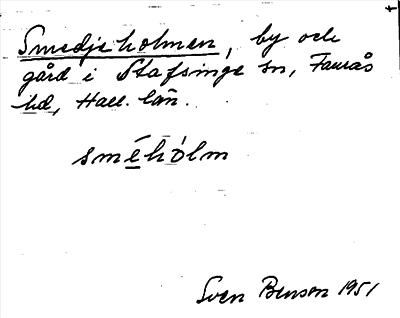 Smedjeholmen, by och
gård i Stafsinge sn, Faurås
hd, Hall. län.
sméhólm
Sven Benson 1951